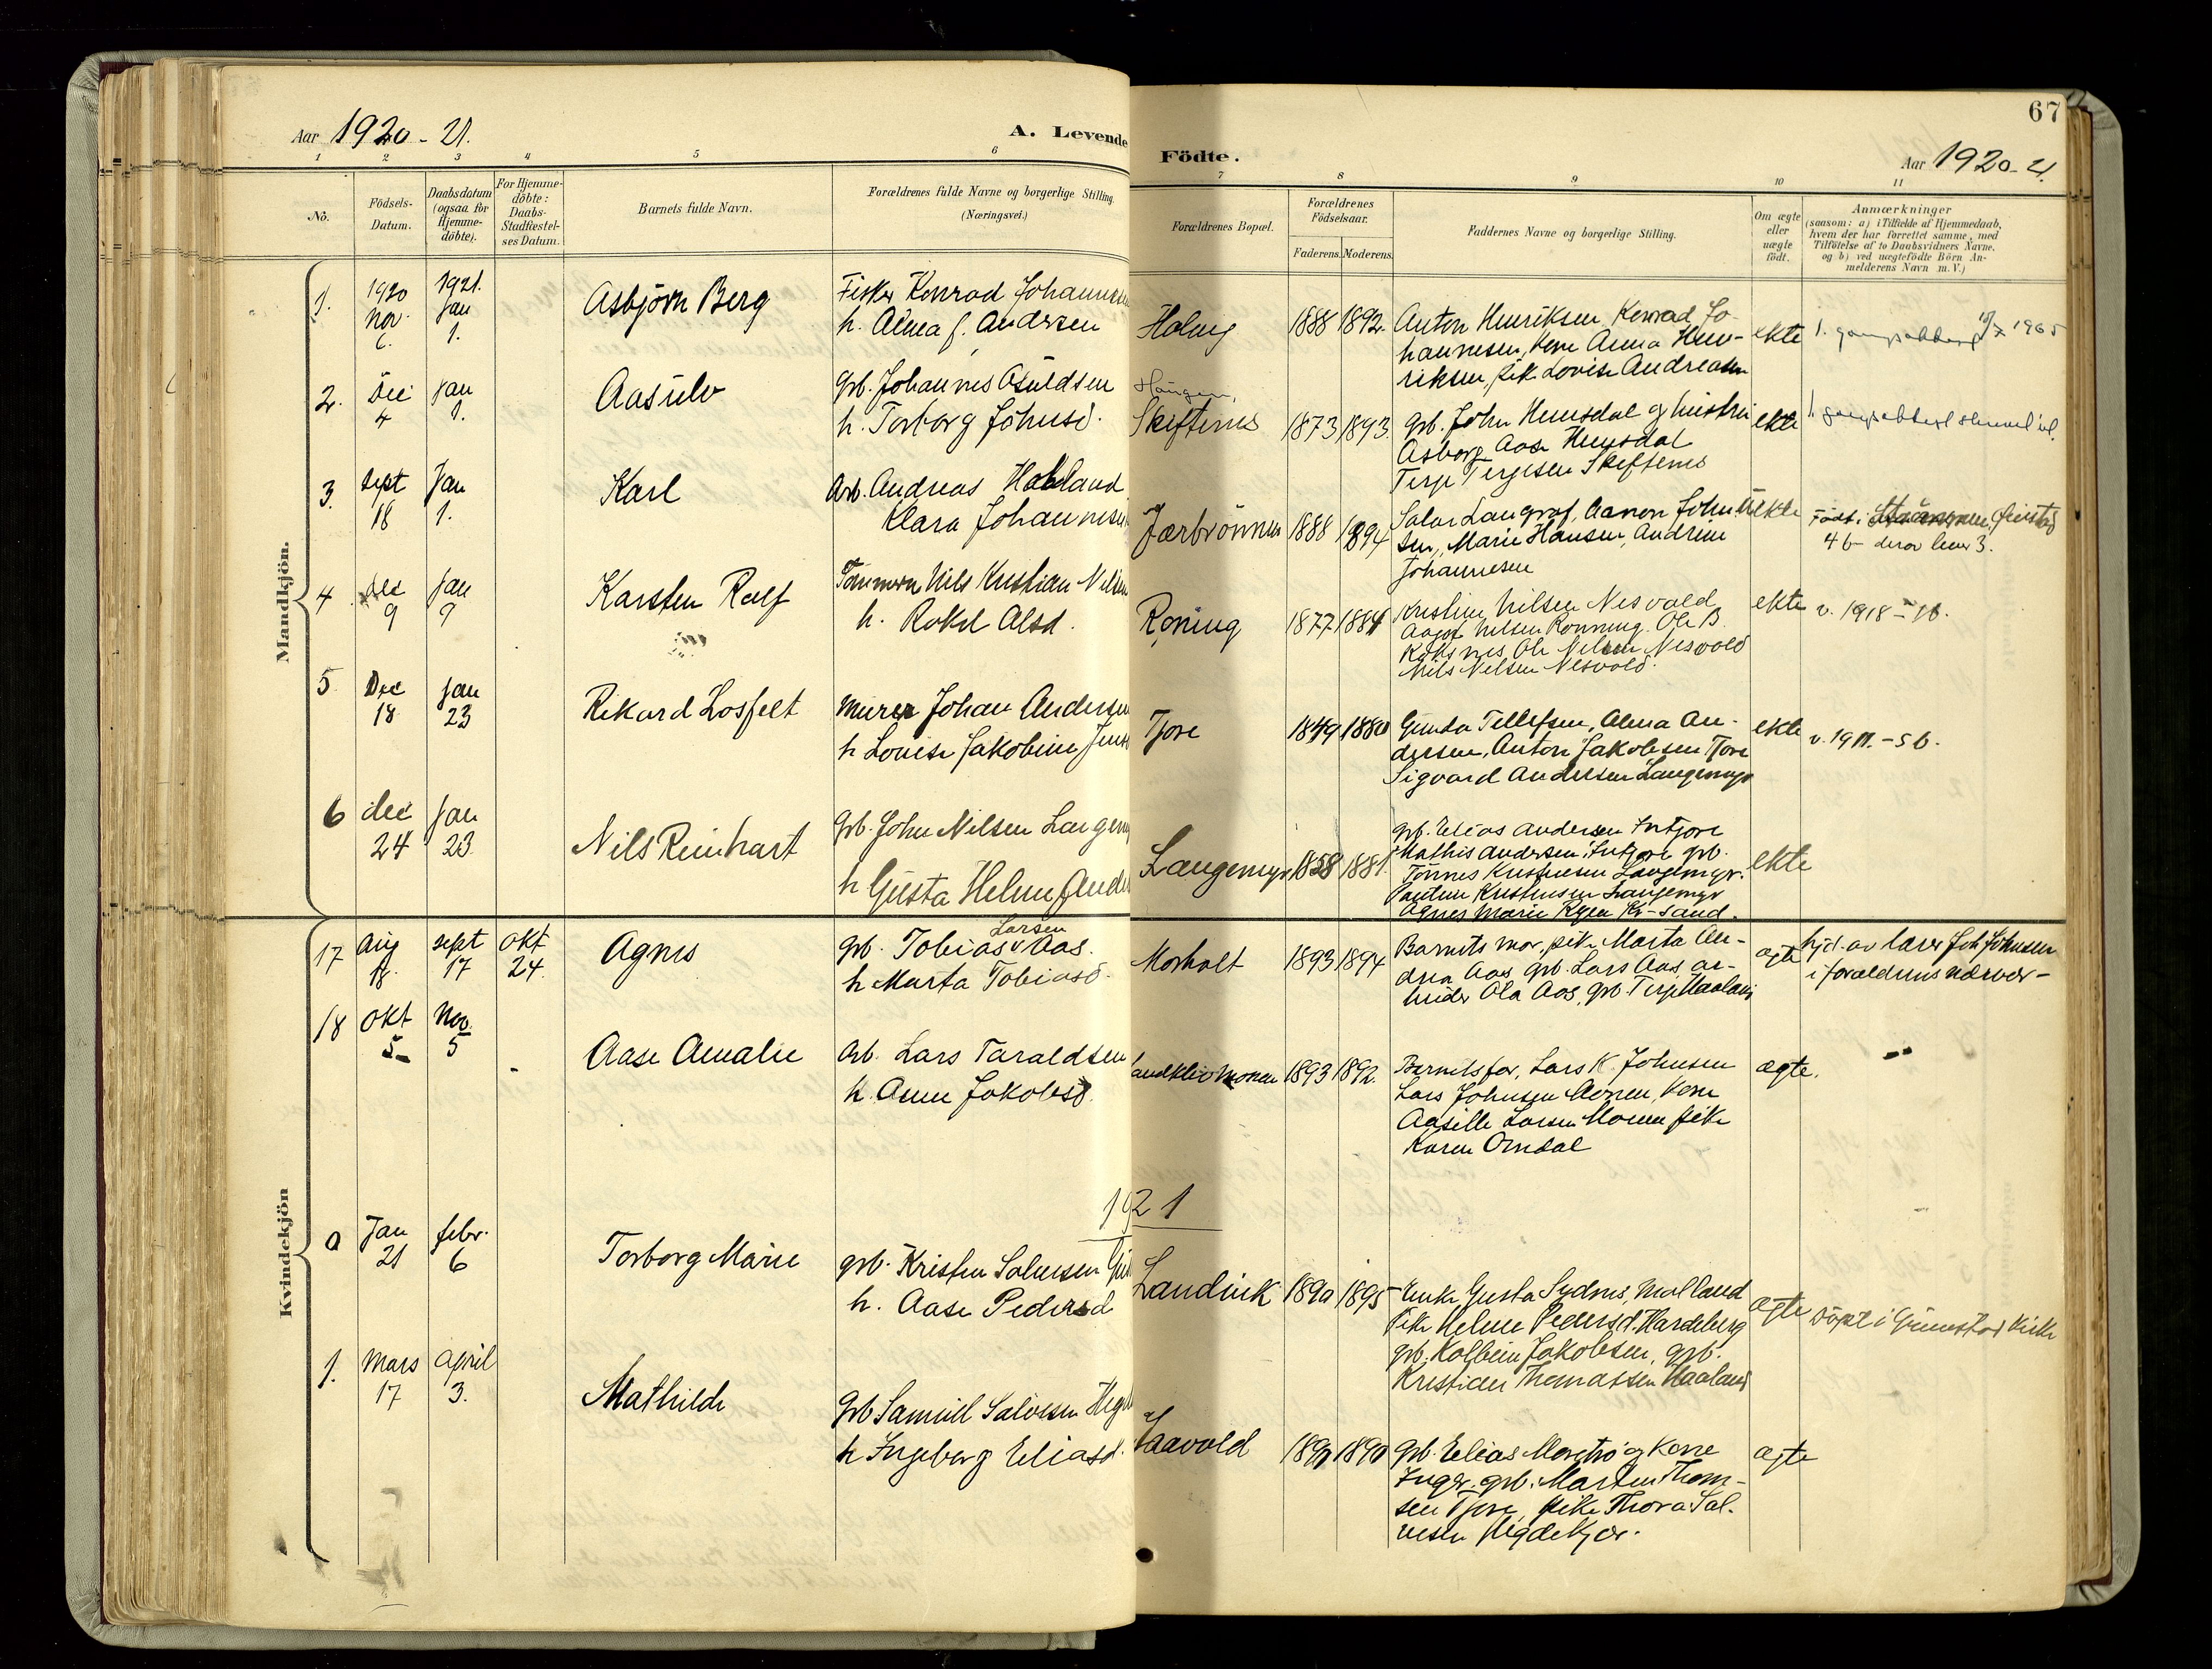 Aar 1920-21.
A. Levende
Födte.
67
Aar 1920-21.
1 2 3 4 5 6 7 8 9 10 11
No.
Födsels-
Datum.
Daabsdatum
(ogsaa for
Hjemme-
döbte).
For Hjemme-
döbte:
Daabs-
Stadfæstel-
ses Datum.
Barnets fulde Navn.
Forældrenes fulde Navne og borgerlige Stilling.
(Næringsvei.)
Forældrenes Bopæl.
Forældrenes
Födselsaar.
Faderens. Moderens.
Faddernes Navne og borgerlige Stilling.
Om ægte
eller
uægte
födt.
Anmærkninger
(saasom: a) i Tilfælde af Hjemmedaab,
hvem der har forrettet samme, med
Tilföielse af to Daabsvidners Navne.
og b) ved uægtefödte Börn An-
melderens Navn m. V.)
Mandkjön.
1. 1920 nov. 6. 1921. Jan 1. Asbjörn Berg
Fisker Konrad Johannesen
h. Alma f. Andersen
1888 1892.
Anton Henriksen, Konrad Jo-
hannesen, kone Anna Hen-
riksen, pik. Lovise Andreasen
ekte
1965
2. Dec 4 Jan 1. Aasulv
Grb. Johannes Osuldsen
h. Torborg Johnsd.
Haugen,
Skiftenes
1873 1893.
Grb. John Hemsdal og hustru
Asborg, Aase Hemsdal
Terje Terjesen Skiftenes
ekte
3. Sept 18 Jan 1. Karl
Arb. Andreas Haaland
Klara Johannesen
Jærbrönnen
1888 1894
Salve Langraf, Aanon Johan-
sen, Marie Hansen, Andrine
Johannesen
uekte
Födt i
4 b- derav lever 3.
4 dec 9 Jan 9 Karsten Ralf
Tömmerm. Nils Kristian Nilsen
h. Rakel Alsd.
Roning
1877 1884
Kristine Nilsen Nesvold
Aagot Nilsen Rönning. Ole B.
Ole Nilsen Nesvold
Nils Nilsen Nesvold.
ekte
v. 1918 - 7 b.
5. Dec 18 Jan 23 Rikard Losfelt
Murer Johan Andersen
h Louise Jakobine Jens
Tjore
1879 1880
Gunda Tellefsen, Alma An-
dersen, Anton Jakobsen Tjore
Sigvard Andersen Langemyr
ekte
v. 1911. - 5 b.
6 dec 24 Jan 23. Nils Reinhart
Grb. John Nilsen Langemyr
h Gusta Helene Ander
Langemyr
1858 1881.
grb. Elias Andersen Intjore
Mathis Andersen Intjore grb.
Tönnes Kristensen Langemyr.
Kristensen Langemyr
Agnes Marie Kr-sand.
ekte
Kvindekjön
17 Aug 18. Sept 17 Okt 24. Agnes
Grb. Tobias Larsen Aas.
h Marta Tobiasd.
Morholt
1893 1894
Barnets mor, pike Marta An-
drea Aas, grb. Lars Aas, ar-
beider Ola Aas, grb. Terje Haaland
ægte
hjd. av lærer Joh Johnsen
i foreldrenes nærvær -
18 Okt 5 Nov. 5 Aase Amalie
Arb. Lars Taraldsen
h. Anne Jakobsd.
Landklevmonen
1893 1892.
Barnets far, Lars K. Johnsen
Lars Johnsen Monen, Kone
Aasille Larsen Monen pike
Karen Omdal
ægte.
1921
a Jan 21 febr. 6 Torborg Marie
grb. Kristen Salvesen
h. Aase Pedersd
Landvik
1890 1895
Enke Gusta Sydnes, Molland
Pike Helene Pedersd. Hardeberg
grb. Kolbein Jakobsen, grb.
Kristian Thomassen Haaland
ægte
Döpt i Grimstad Kirke
1. Mars 17 April 3. Mathilde
Grb Samuel Salvesen Hegde
h Ingeborg Eliasd.
1890
grb. Elias Moretrö og kone
Inger. grb. Marten Thom-
sen Tjore, pike Thora Sal-
vesen Hegdekjær.
ægte